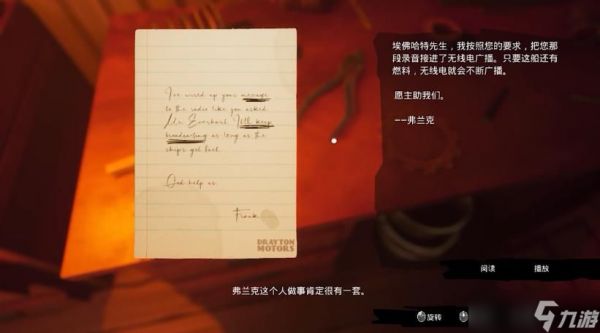 I've wired up your message
to the radio like you asked,
Mr. Everhart. It'll keep
broadcasting as long as the
ship's got fuel.
God help us.
Frank
DRAYTON
MOTORS
埃佛哈特先生，我按照您的要求，把您那
段录音接进了无线电广播。只要这船还有
燃料，无线电就会不断广播。
愿主助我们。
——弗兰克
阅读 播放
弗兰克这个人做事肯定很有一套。
旋转
九游